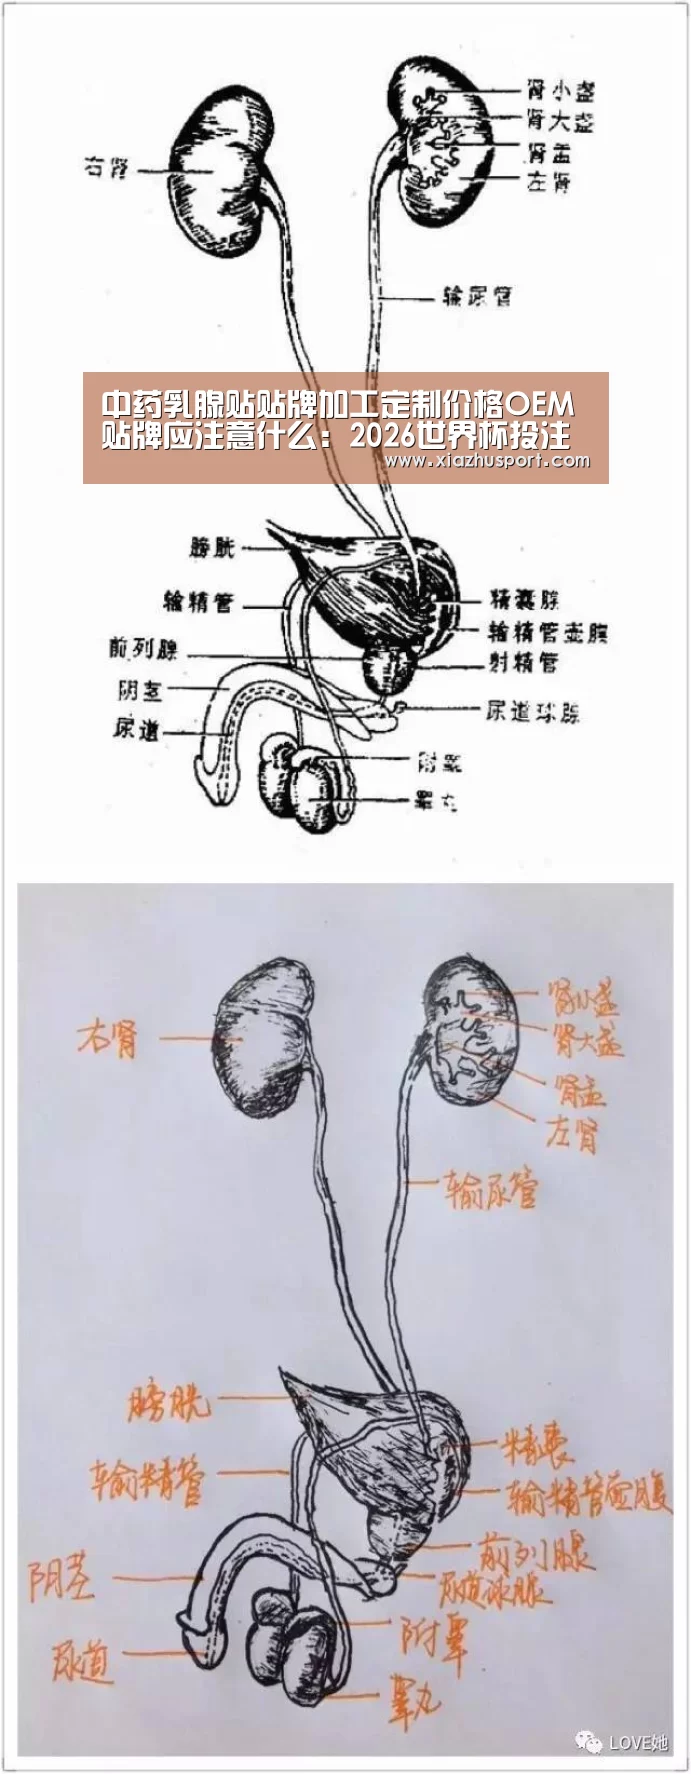 肾小盏
肾大盏
肾盂
左肾
右肾
输尿管
中药乳腺贴贴牌加工定制价格OEM
贴牌应注意什么：2026世界杯投注
www.xiazhusport.com
膀胱
输精管
前列腺
阴茎
尿道
精囊腺
输精管壶腹
射精管
尿道球腺
附睾
睾丸
右肾
肾小盏
肾大盏
肾盂
左肾
输尿管
膀胱
输精管
阴茎
尿道
精囊
输精管壶腹
前列腺
尿道球腺
附睾
睾丸
LOVE她